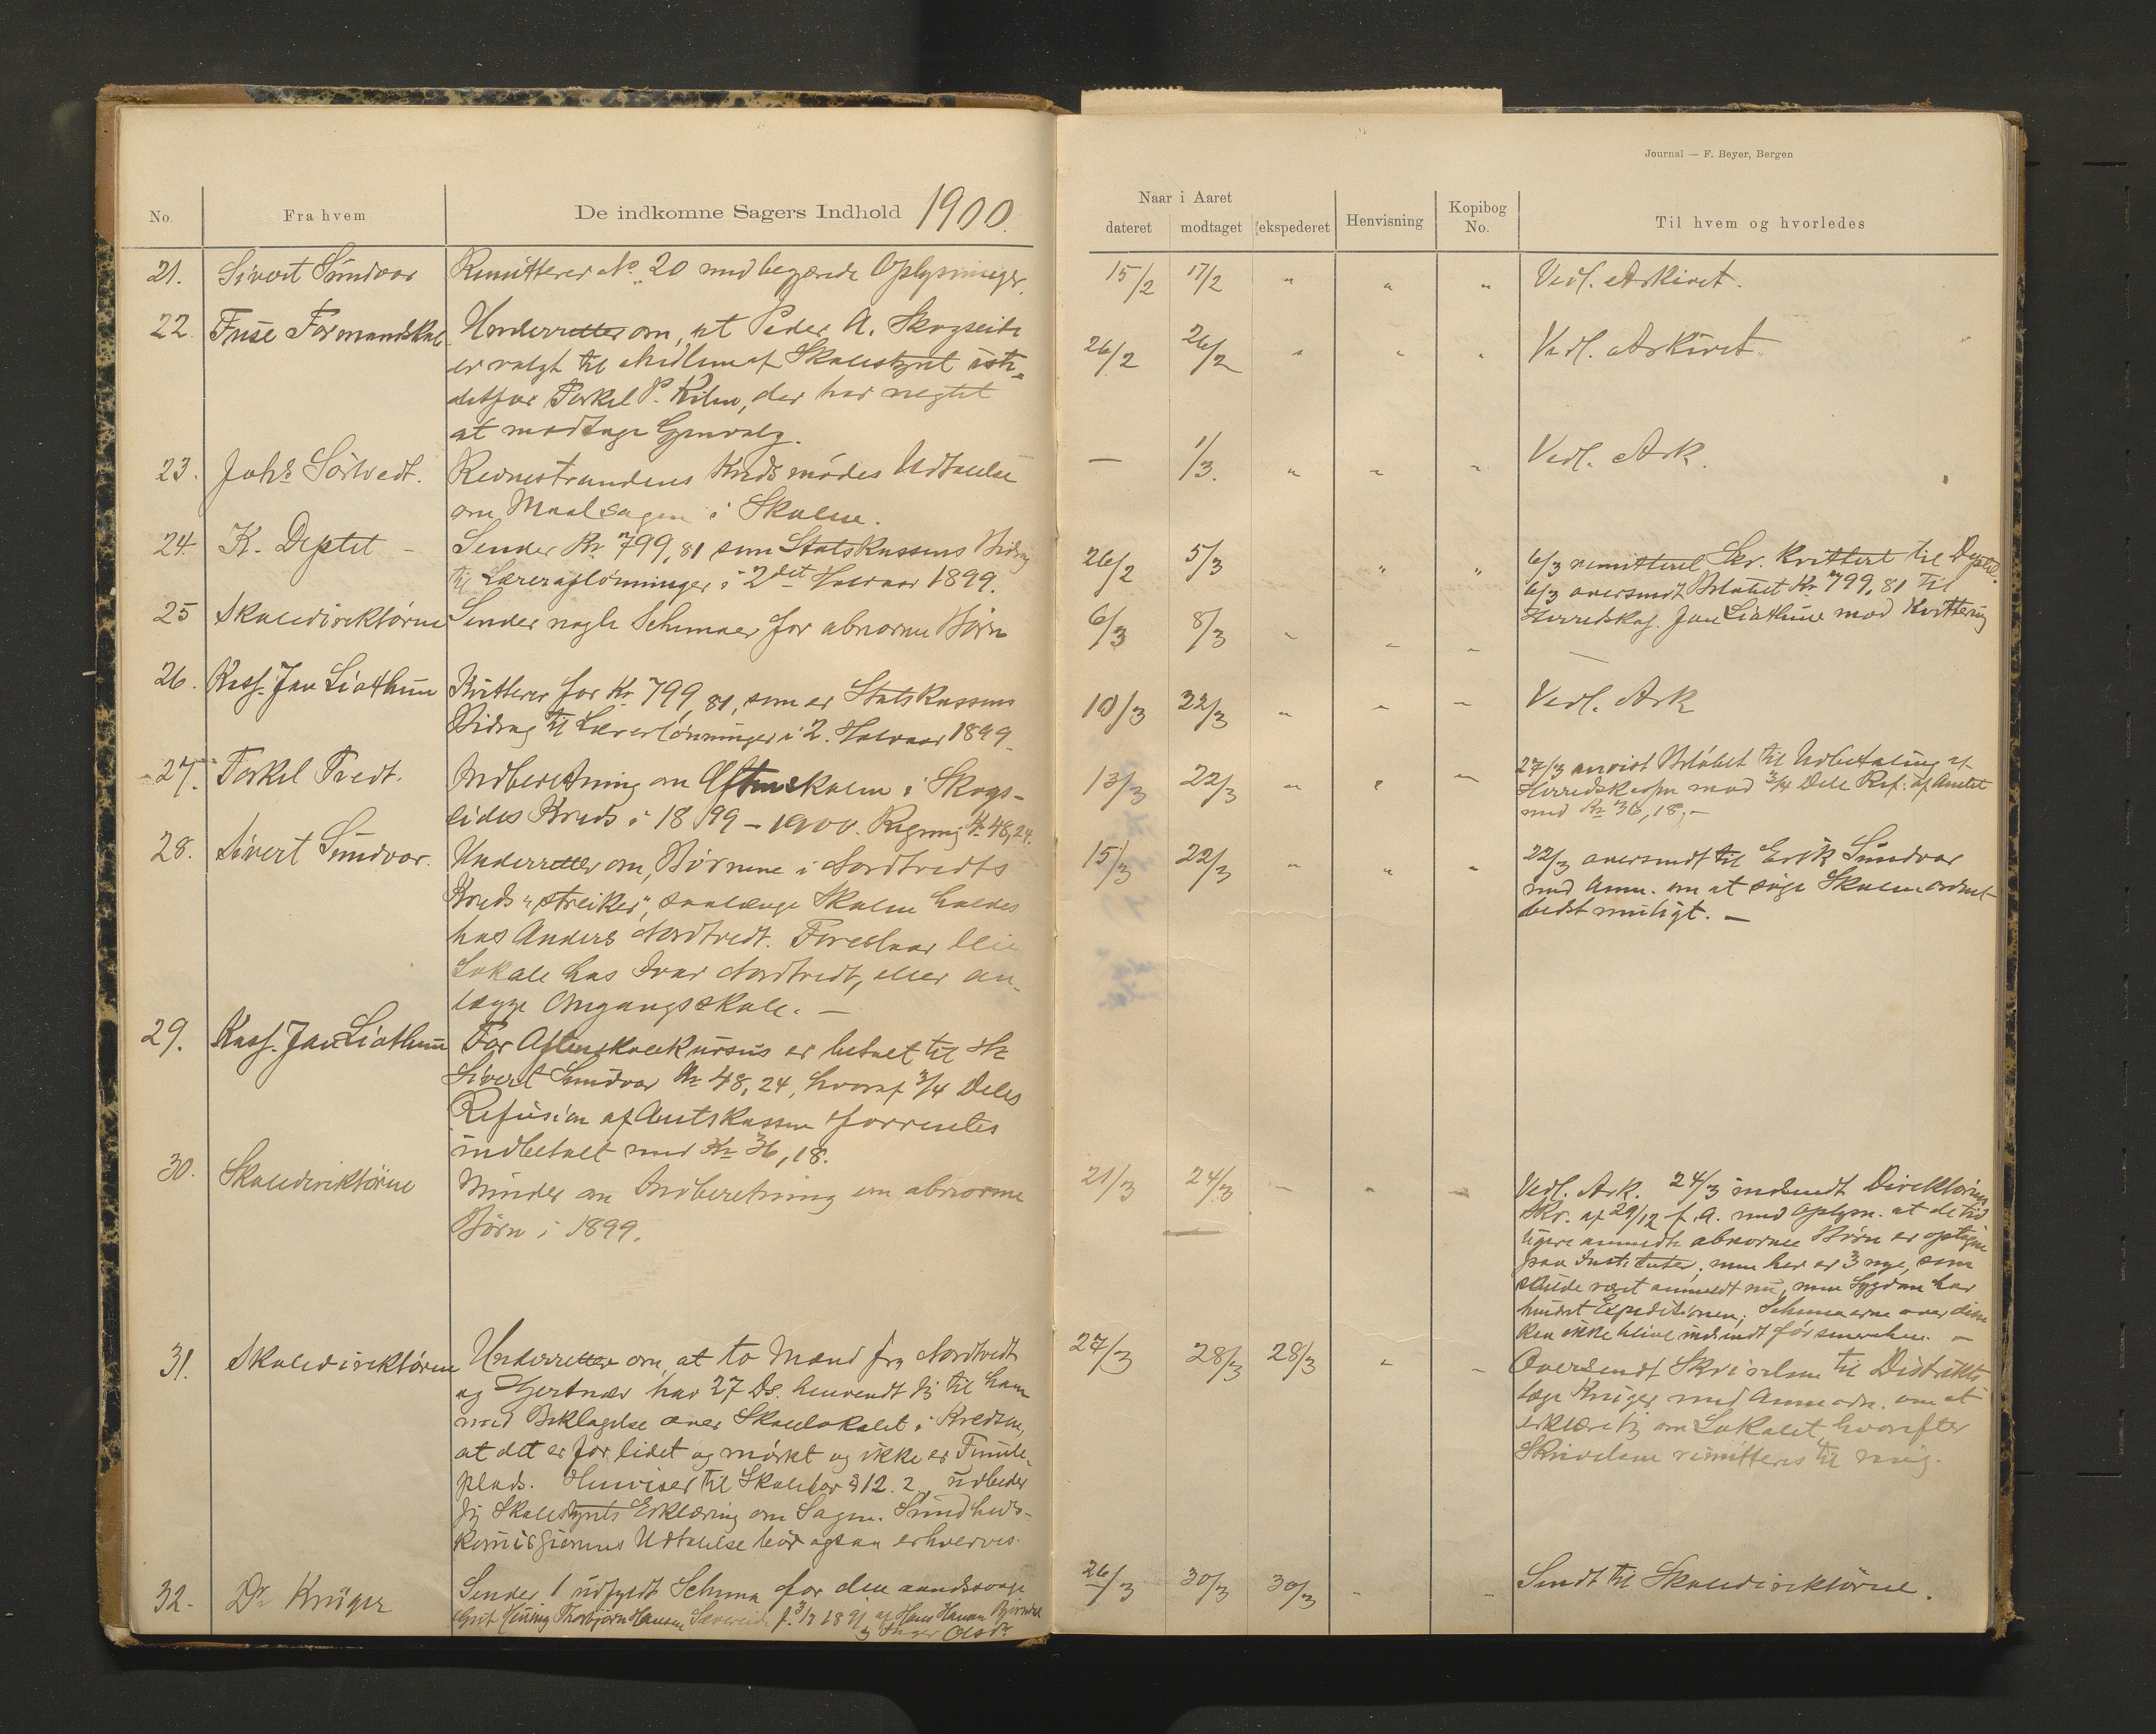 Journal — F. Beyer, Bergen
No.
Fra hvem
De indkomne Sagers Indhold 1900.
Naar i Aaret
dateret
modtaget
ekspederet
Henvisning
Kopibog
No.
Til hvem og hvorledes
21. Sivert Sundvor Remitterer No. 20 med begjærede Oplysninger. 15/2 17/2 " " " Vedl. Arkivet.
22. Fuse Formandskab Underretter om, at Peder A. Skogseide 26/2 26/2 " " " Vedl. Arkivet.
er valgt til Medlem af Skolestyret iste-
detfor Torkel P. Kilen, der har negtet
at modtage Gjenvalg.
23. Johs Sörtvedt. Revnestrandens Kredsmödes Udtalelse — 1/3. " " " Vedl. Ark.
om Maalsagen i Skolen.
24. K. Deptet - Sender Kr 799,81 som Statskassens Bidrag 26/2 5/3 " " 6/3 remitteret Skr. kvittert til Deptet.
til Læreraflönninger i 2det Halvaar 1899. 6/3 oversendt Belöbet Kr 799,81 til
25 Skoledirektören Sender nogle Schemaer for abnorme Börn 6/3 8/3 " " " Herredskas. Jan Liathun mod Kvittering
—
26. Kass. Jan Liathun Kvitterer for Kr 799,81, som er Statskassens 10/3 22/3 " " " Vedl. Ark
Bidrag til Lærerlönninger i 2. Halvaar 1899.
27. Torkel Tvedt. Indberetning om Aftenskolen i Skogs- 13/3 22/3 " " " 27/3 anvist Belöbet til Udbetaling af
eides Kreds i 1899-1900. Regning Kr 48,24. Herredskassen mod 3/4 Dele Ref. af Amtet
med Kr 36,18.-
28. Sivert Sundvor. Underretter om, Börnene i Nordtvedts 15/3 22/3 " " " 22/3 oversendt til Erik Sundvor
Kreds "streiker", saalænge Skolen holdes med Anm. om at söge Skolen ordnet
hos Anders Nordtvedt. Foreslaar leie bedst muligt. —
Lokale hos Ivar Nordtvedt, eller an-
lægge Omgangsskole. —
29. Kass. Jan Liathun For Aftenskolekursus er betalt til Hr
Sivert Sundvor Kr 48,24, hvoraf 3/4 Deles
Refusion af Amtskassen forventes
indbetalt med Kr 36,18.
30. Skoledirektören Minder om Indberetning om abnorme 21/3 24/3 - " " Vedl. Ark. 24/3 indsendt Direktörens
Börn i 1899. Skr. af 29/12 f. A. med Oplysn. at de tid-
ligere anmeldte abnorme Börn er optagne
paa Instituter, men her er 3 nye, som
skulde været anmeldt nu, men Sygdom har
hindret Expeditionen; Schemaerne over disse
kan ikke blive indsendt för senerehen. —
31. Skoledirektören Underretter om, at to Mænd fra Nordtvedt 27/3 28/3 28/3 " " Oversendt Skrivelsen til Distrikts-
og Gjertnær har 27 Ds. henvendt sig til ham læge Krüger med Anmodn. om at
med Beklagelse over Skolelokalet i Kredsen, erklære sig om Lokalet, hvorefter
at det er for lidet og mörkt og ikke er Tumle- Skrivelsen remitteres til mig.
plads. Henviser til Skolelov § 12. 2., udbeder
sig Skolestyrets Erklæring om Sagen. Sundheds-
kommissionens Udtalelse bör ogsaa erhverves.
32. Dr Krüger Sender 1 udfyldt Schema for den aandssvage 26/3 30/3 30/3 " " Sendt til Skoledirektören.
Gut Thorbjörn Hansen Sævereide f. 3/7 1891 af Hans Hansen
og Inger Olsdr